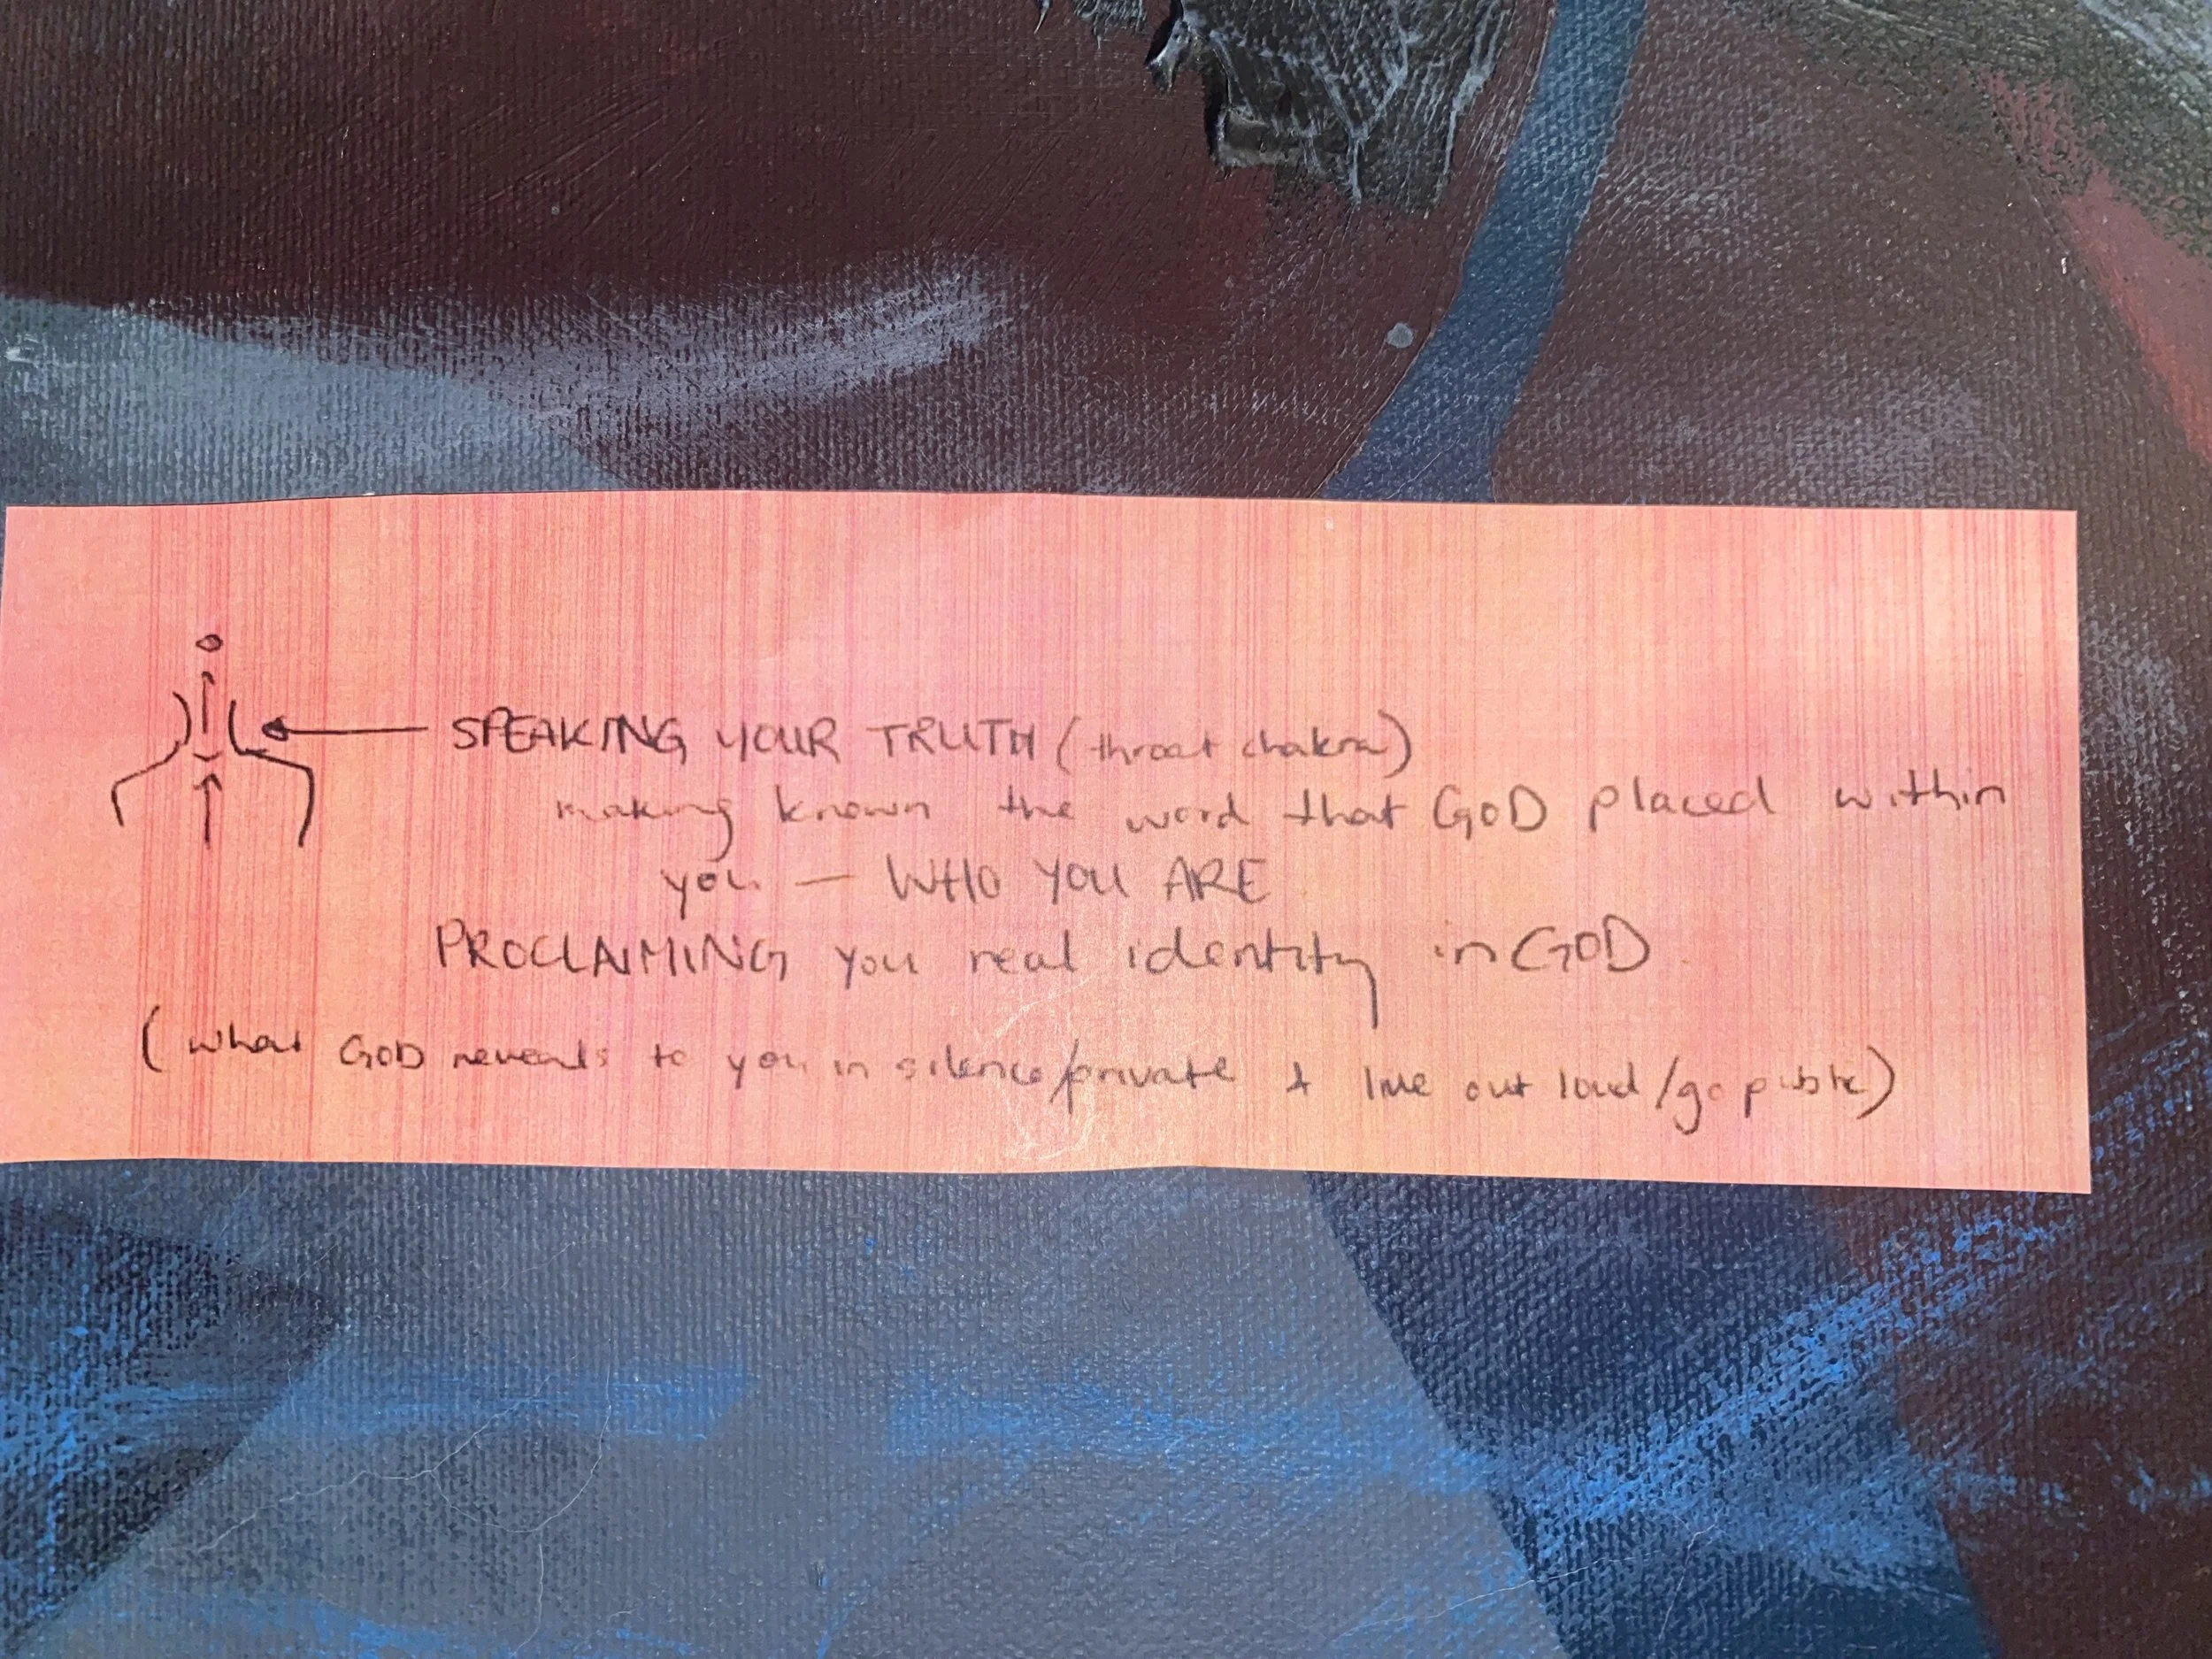 SPEAKING YOUR TRUTH (throat chakra)
making known the word that GOD placed within
you — WHO YOU ARE
PROCLAIMING you real identity in GOD
(what GOD reveals to you in silence/private + live out loud/go public)